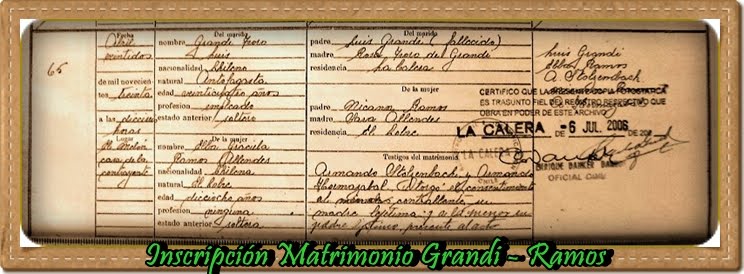 65
Fecha
Abril
veintidos
de mil novecien-
tos treinta
a las dieciseis
horas
casa de la
contrayente
Del marido
nombre Grandi Toro
Luis
nacionalidad Chilena
natural Antofagasta
edad veinticuatro años
profesion empleado
estado anterior soltero
De la mujer
nombre Elba Graciela
Ramos Allendes
nacionalidad Chilena
natural El Melon
edad dieciocho años
profesion ninguna
estado anterior soltera
Del marido
padre Luis Grandi (fallecido)
madre Rosa Toro de Grandi
residencia La Calera
De la mujer
padre Nicanor Ramos
madre Sara Allendes
residencia El Melon
Testigos del matrimonio
Armando Stolzenbach y Armando
consentimiento
su
madre legitima y a la menor su
padre legitimo, presente al acto
Luis Grandi
Elba Ramos
A. Stolzenbach
CERTIFICO QUE LA PRESENTE COPIA FOTOSTATICA
ES TRASUNTO FIEL DEL REGISTRO RESPECTIVO QUE
OBRA EN PODER DE ESTE ARCHIVO
LA CALERA - 6 JUL. 2006
LA CALERA
CHILE
OFICIAL CIVIL
Inscripción Matrimonio Grandi - Ramos